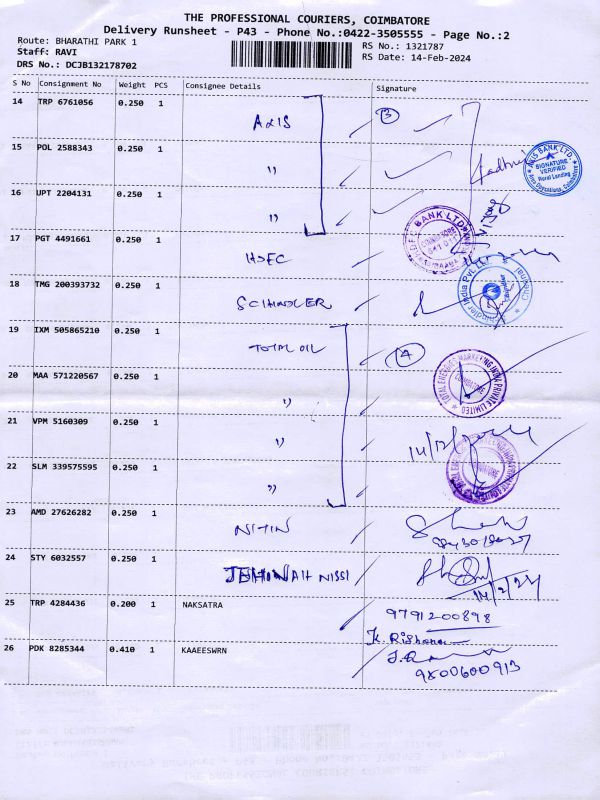 THE PROFESSIONAL COURIERS, COIMBATORE
Delivery Runsheet - P43 - Phone No.:0422-3505555 - Page No.:2
Route: BHARATHI PARK 1
Staff: RAVI
DRS No.: DCJB132178702
RS No.: 1321787
RS Date: 14-Feb-2024
S No Consignment No Weight PCS Consignee Details Signature
14 TRP 6761056 0.250 1 AXIS 3
15 POL 2588343 0.250 1 "
16 UPT 2204131 0.250 1 "
AXIS BANK LTD.
SIGNATURE VERIFIED
Rural Lending
BANK LTD
17 PGT 4491661 0.250 1 HDFC
18 TMG 200393732 0.250 1 SCHINDLER
India Pvt. Ltd.
19 IXM 505865210 0.250 1 TOTAL OIL 4
20 MAA 571220567 0.250 1 "
TOTAL ENERGIES MARKETING INDIA PRIVATE LIMITED
COIMBATORE
21 VPM 5160309 0.250 1 "
22 SLM 339575595 0.250 1 "
23 AMD 27626282 0.250 1 NITIN
24 STY 6032557 0.250 1 JEHINAH NISSI
14/2/24
25 TRP 4284436 0.200 1 NAKSATRA 9791200898
K. Rishana
26 PDK 8285344 0.410 1 KAAEESWRN
9800600913